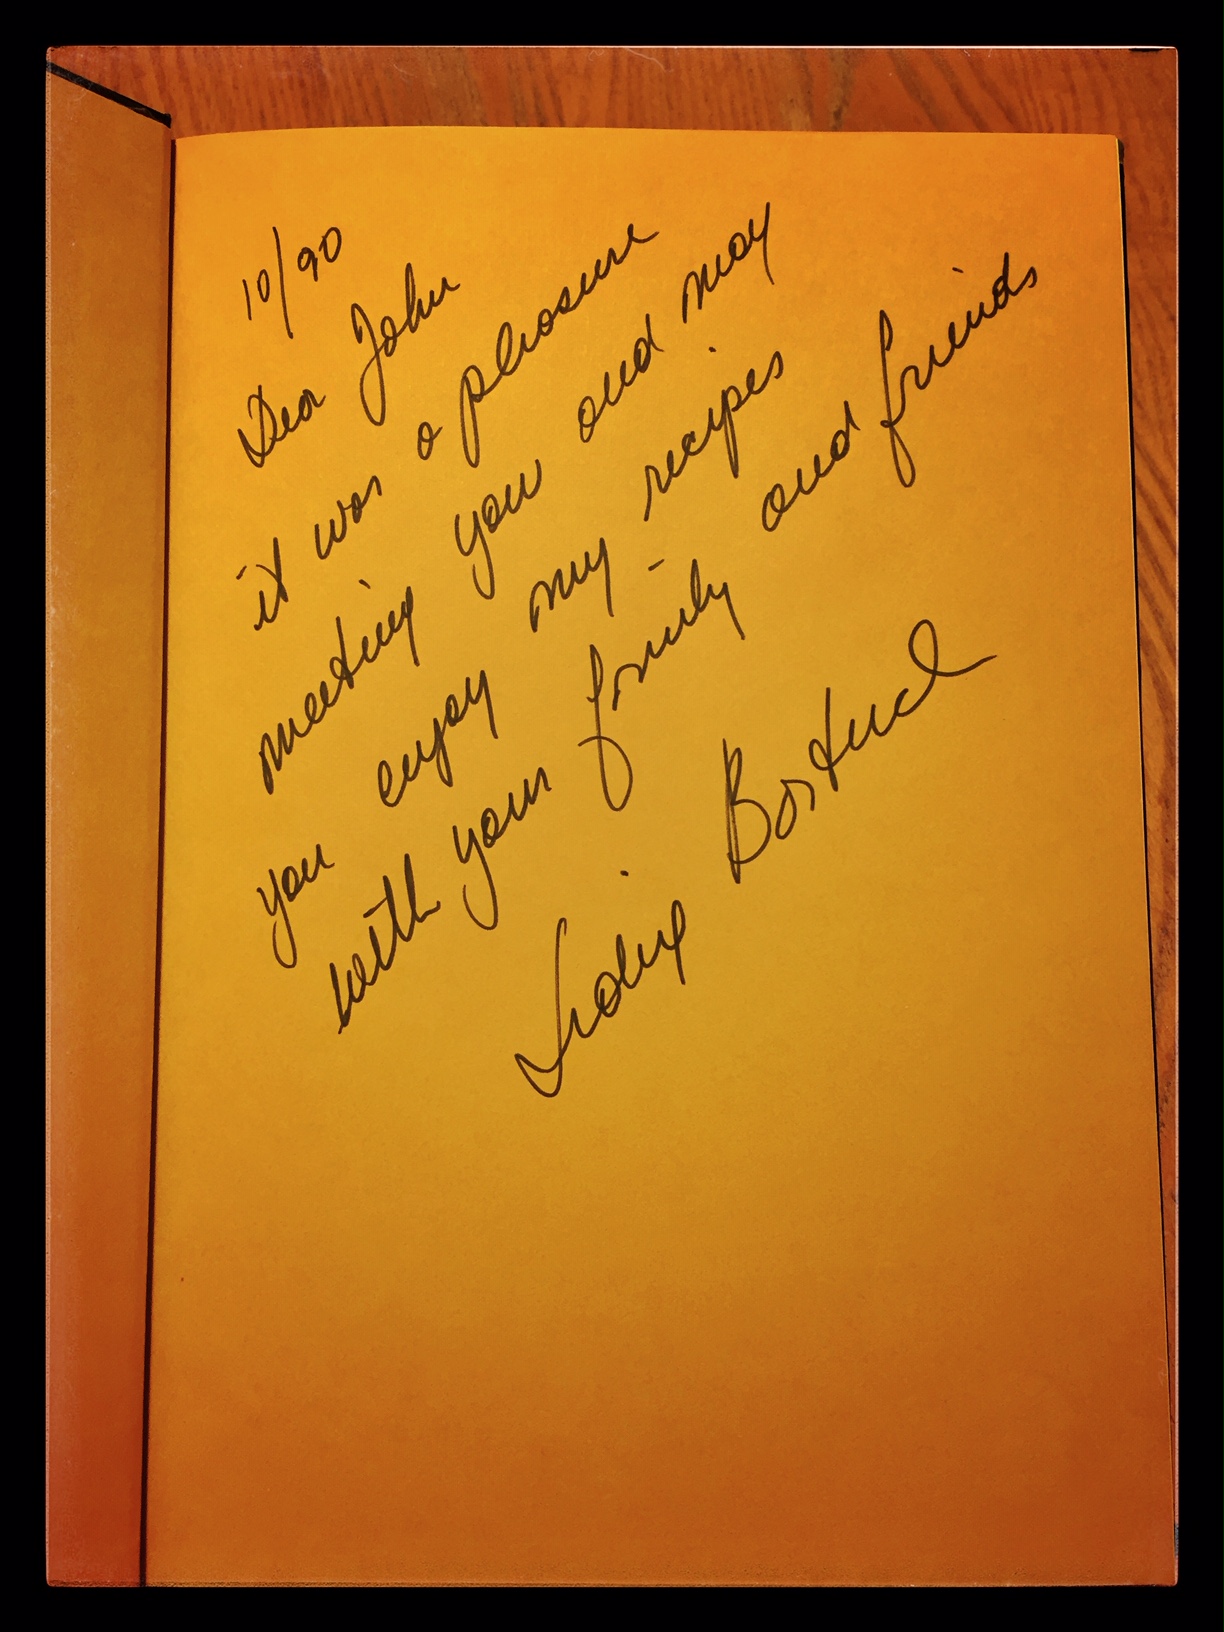 10/90
Dear John
it was a pleasure
meeting you and may
you enjoy my recipes -
with your family and friends
Lidia Bastianich